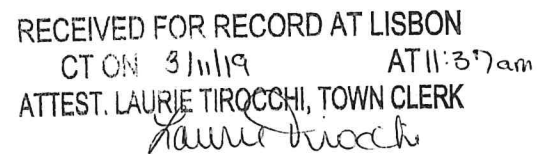 RECEIVED FOR RECORD AT LISBON
CT ON 3/11/19 AT 11:37am
ATTEST. LAURIE TIROCCHI, TOWN CLERK
Laurie Tirocchi